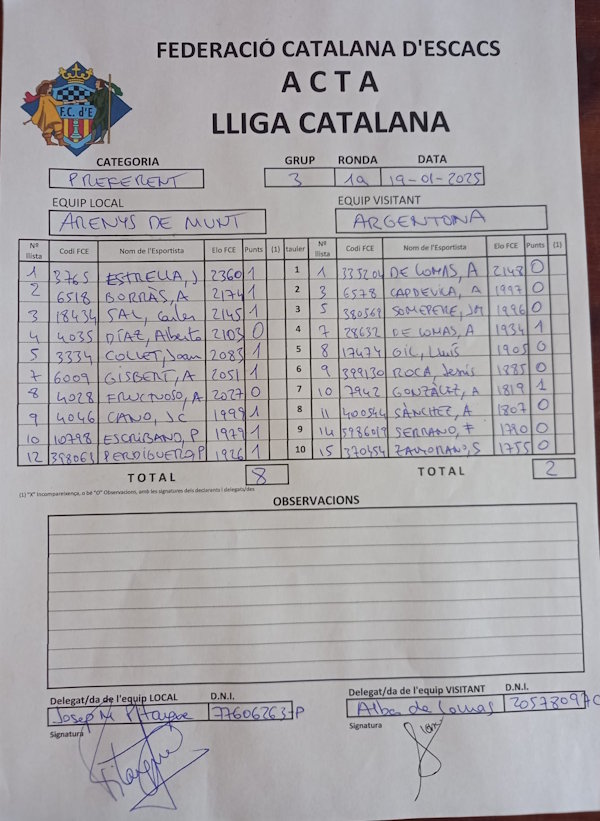 FEDERACIÓ CATALANA D'ESCACS
A C T A
LLIGA CATALANA
F.C. d'E
CATEGORIA GRUP RONDA DATA
PREFERENT 3 1a 19-01-2025
EQUIP LOCAL EQUIP VISITANT
ARENYS DE MUNT ARGENTONA
Nº llista Codi FCE Nom de l'Esportista Elo FCE Punts (1) tauler Nº llista Codi FCE Nom de l'Esportista Elo FCE Punts (1)
1 3765 ESTRELLA, J 2360 1 1 1 335204 DE COMAS, A 2148 0
2 6518 BORRÀS, A 2174 1 2 3 6578 CAPDEVILA, A 1997 0
3 18434 SAL, Carles 2145 1 3 5 SOMEPERE, JM 1996 0
4 4035 DÍAZ, Alberto 2103 0 4 7 28632 DE COMAS, A 1934 1
5 3334 COLLET, Joan 2083 1 5 8 17474 GIL, Lluís 1905 0
7 6009 GISBERT, A 2051 1 6 9 399130 ROCA, Jesús 1885 0
8 4028 FRUCTUOSO, A 2027 0 7 10 7942 GONZÁLEZ, A 1819 1
9 4046 CANO, JC 1999 1 8 11 400544 SÀNCHEZ, A 1807 0
10 10798 ESCRIBANO, P 1979 1 9 14 SERRANO, F 1780 0
12 398063 PERDIGUERA, P 1926 1 10 15 370454 ZAMORANO, S 1755 0
TOTAL 8 TOTAL 2
(1) "X" Incompareixença, o bé "O" Observacions, amb les signatures dels declarants i delegats/des
OBSERVACIONS
Delegat/da de l'equip LOCAL D.N.I. Delegat/da de l'equip VISITANT D.N.I.
Josep M 77606263-P Alba de Comas 20578097C
Signatura Signatura